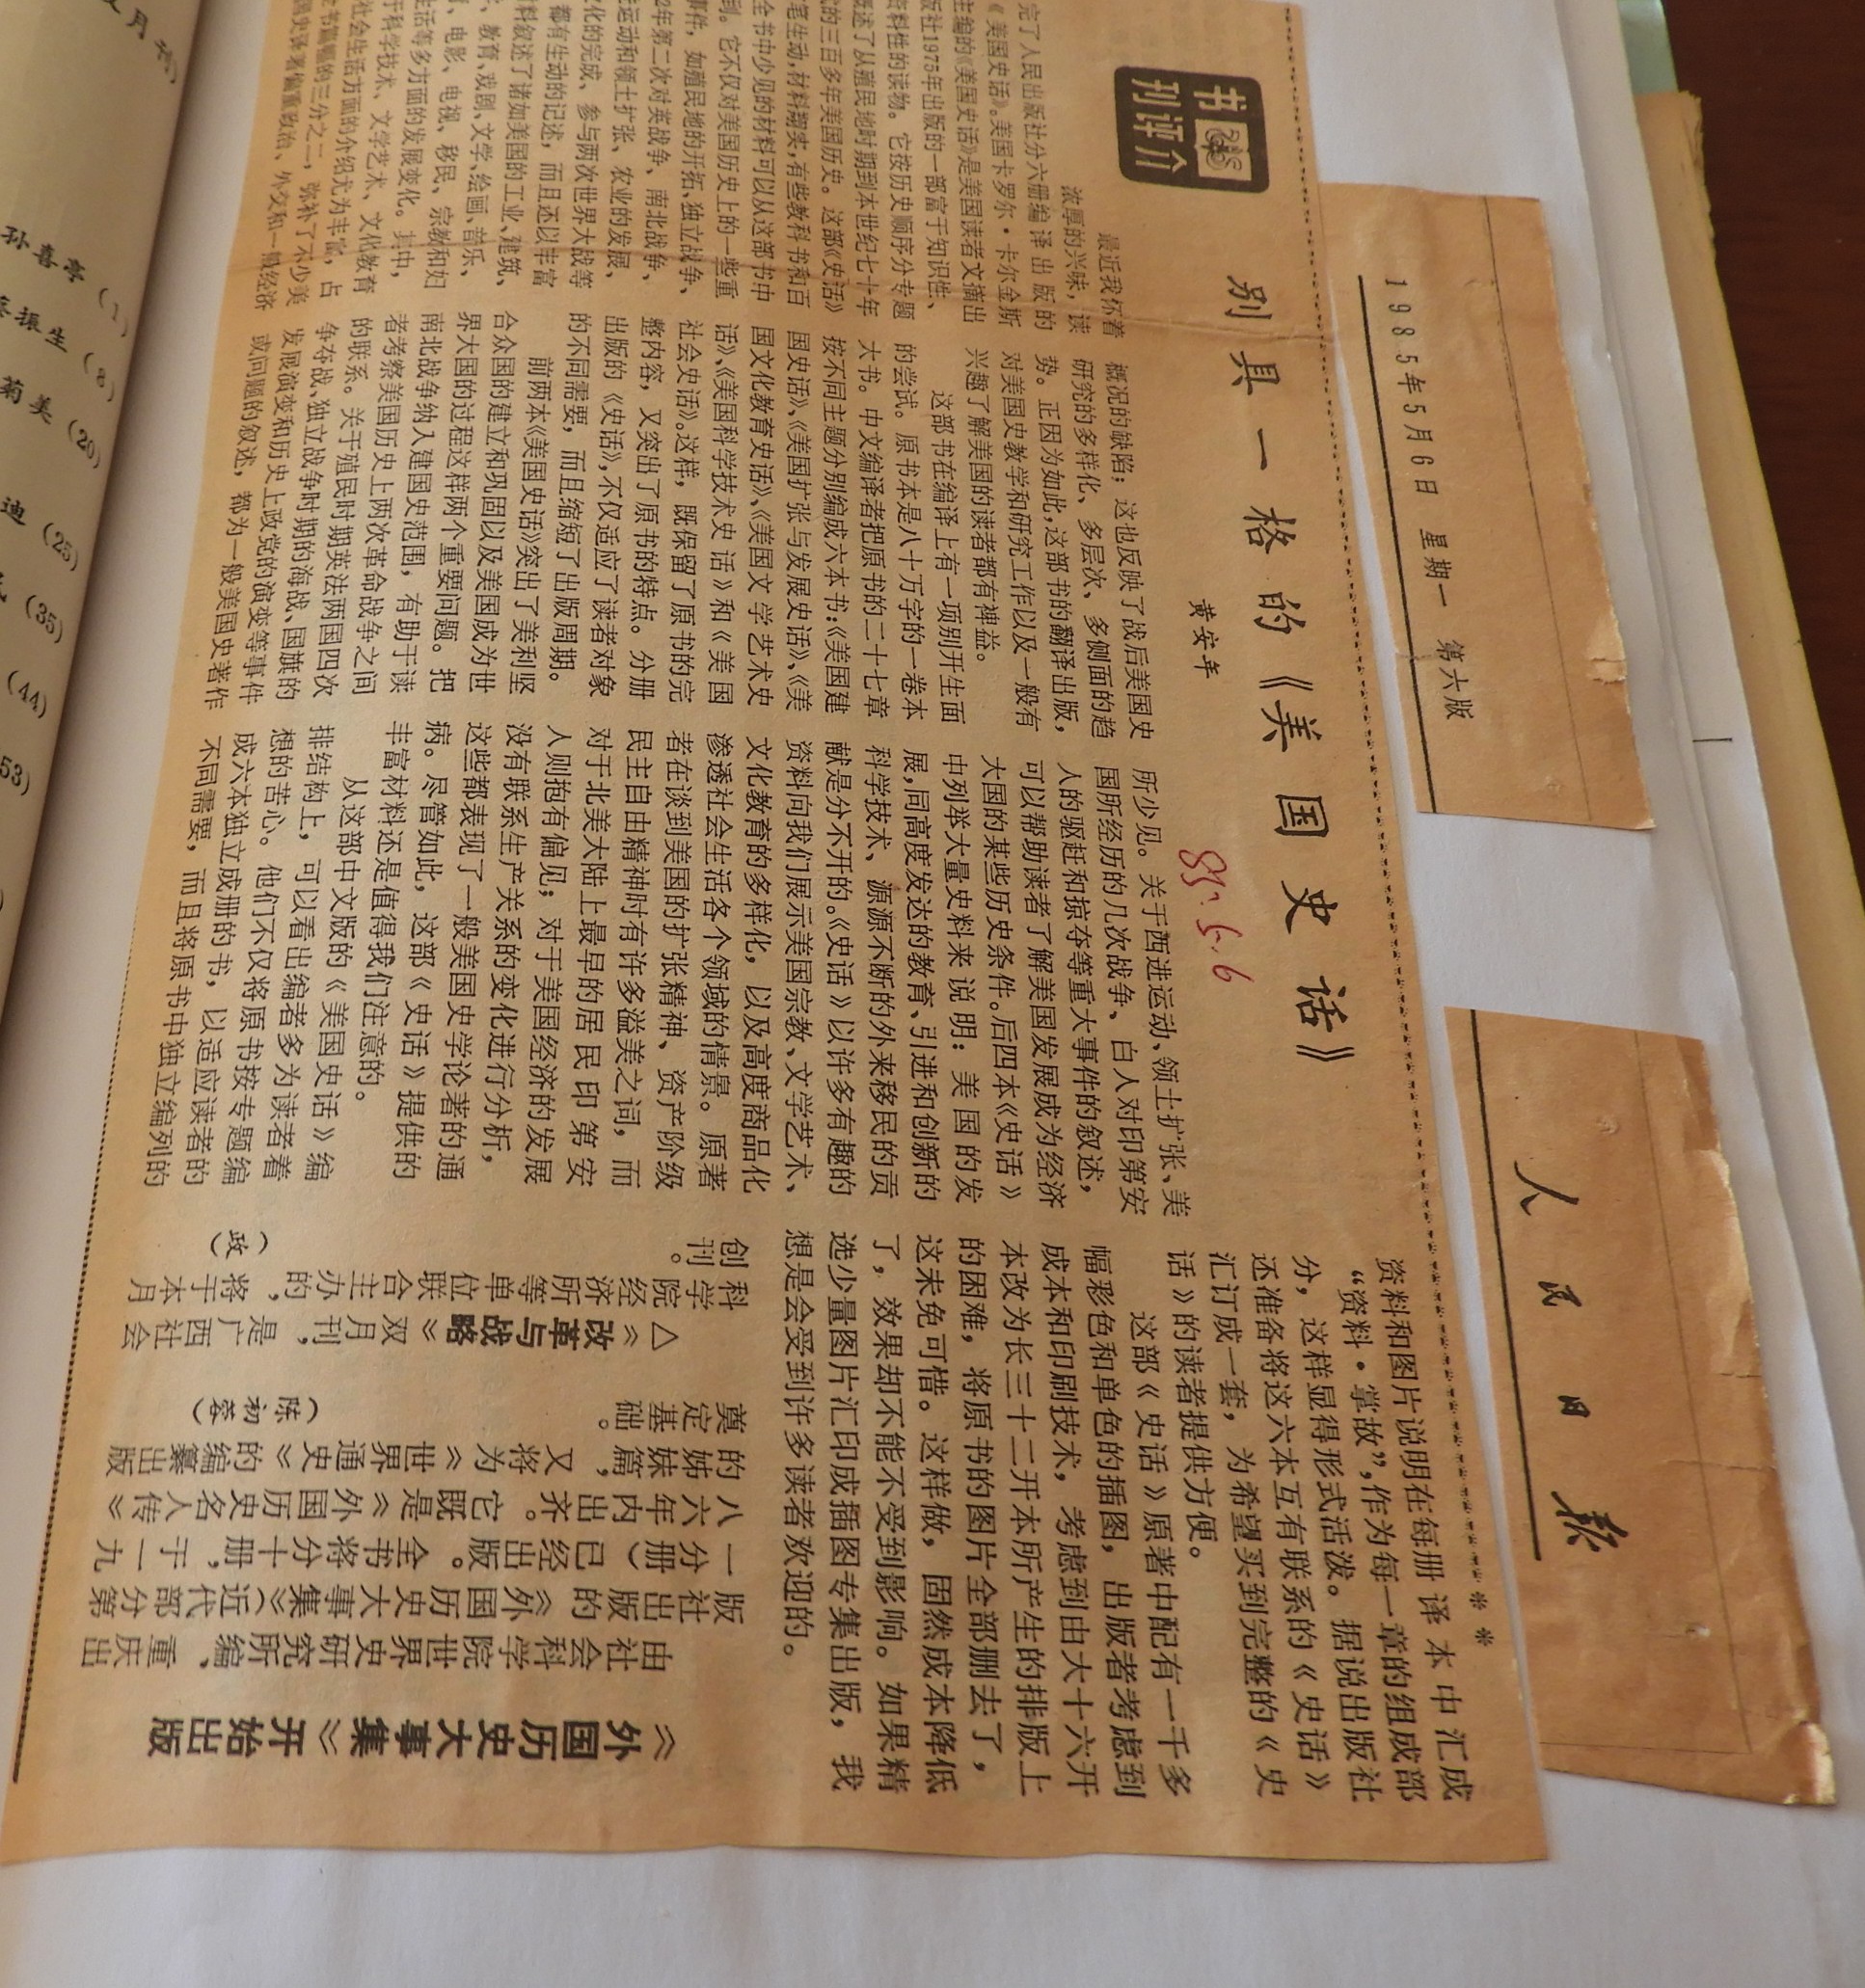 人民日报
1985年5月6日 星期一 第六版
书刊评介
别具一格的《美国史话》
黄安年
85.5.6
最近我怀着
浓厚的兴味,读
完了人民出版社分六册编译出版的
《美国史话》。美国卡罗尔·卡尔金斯
主编的《美国史话》是美国读者文摘出
版社1975年出版的一部富于知识性、
资料性的读物。它按历史顺序分专题
概述了从殖民地时期到本世纪七十年
的三百多年美国历史。这部《史话》
笔生动,材料翔实,有些教科书和百
全书中少见的材料可以从这部书中
到。它不仅对美国历史上的一些重
事件,如殖民地的开拓、独立战争、
2年第二次对英战争、南北战争、
运动和领土扩张、农业的发展、
化的完成、参与两次世界大战等
都有生动的记述,而且还以丰富
料叙述了诸如美国的工业、建筑、
、教育、戏剧、文学、绘画、音乐、
、电影、电视、移民、宗教和妇
活等多方面的发展变化。其中,
于科学技术、文学艺术、文化教育
社会生活方面的介绍尤为丰富,占
书篇幅的三分之二,弥补了不少美
国史译著偏重政治、外交和一般经济
概况的缺陷;这也反映了战后美国史
研究的多样化、多层次、多侧面的趋
势。正因为如此,这部书的翻译出版,
对美国史教学和研究工作以及一般有
兴趣了解美国的读者都有裨益。
这部书在编译上有一项别开生面
的尝试。原书本是八十万字的一卷本
大书。中文编译者把原书的二十七章
按不同主题分别编成六本书:《美国建
国史话》、《美国扩张与发展史话》、《美
国文化教育史话》、《美国文学艺术史
话》、《美国科学技术史话》和《美国
社会史话》。这样,既保留了原书的完
整内容,又突出了原书的特点。分册
出版的《史话》,不仅适应了读者对象
的不同需要,而且缩短了出版周期。
前两本《美国史话》突出了美利坚
合众国的建立和巩固以及美国成为世
界大国的过程这样两个重要问题。把
南北战争纳入建国史范围,有助于读
者考察美国历史上两次革命战争之间
的联系。关于殖民时期英法两国四次
争夺战、独立战争时期的海战、国旗的
发展演变和历史上政党的演变等事件
或问题的叙述,都为一般美国史著作
所少见。关于西进运动、领土扩张、美
国所经历的几次战争、白人对印第安
人的驱赶和掠夺等重大事件的叙述,
可以帮助读者了解美国发展成为经济
大国的某些历史条件。后四本《史话》
中列举大量史料来说明:美国的发
展,同高度发达的教育、引进和创新的
科学技术、源源不断的外来移民的贡
献是分不开的。《史话》以许多有趣的
资料向我们展示美国宗教、文学艺术、
文化教育的多样化,以及高度商品化
渗透社会生活各个领域的情景。原著
者在谈到美国的扩张精神、资产阶级
民主自由精神时有许多溢美之词,而
对于北美大陆上最早的居民印第安
人则抱有偏见;对于美国经济的发展
没有联系生产关系的变化进行分析,
这些都表现了一般美国史学论著的通
病。尽管如此,这部《史话》提供的
丰富材料还是值得我们注意的。
从这部中文版的《美国史话》编
排结构上,可以看出编者多为读者着
想的苦心。他们不仅将原书按专题编
成六本独立成册的书,以适应读者的
不同需要,而且将原书中独立编列的
资料和图片说明在每册译本中汇成
“资料·掌故”,作为每一章的组成部
分,这样显得形式活泼。据说出版社
还准备将这六本互有联系的《史话》
汇订成一套,为希望买到完整的《史
话》的读者提供方便。
这部《史话》原著中配有一千多
幅彩色和单色的插图,出版者考虑到
成本和印刷技术,考虑到由大十六开
本改为长三十二开本所产生的排版上
的困难,将原书的图片全部删去了,
这未免可惜。这样做,固然成本降低
了,效果却不能不受到影响。如果精
选少量图片汇印成插图专集出版,我
想是会受到许多读者欢迎的。
《外国历史大事集》开始出版
由社会科学院世界史研究所编、重庆出
版社出版的《外国历史大事集》(近代部分第
一分册)已经出版。全书将分十册,于一九
八六年内出齐。它既是《外国历史名人传》
的姊妹篇,又将为《世界通史》的编纂出版
奠定基础。
(陈初蓉)
△《改革与战略》双月刊,是广西社会
科学院经济所等单位联合主办的,将于本月
创刊。
(政)
孙喜亭(1)
振生(8)
菊美(20)
迪(25)
(35)
(44)
53)